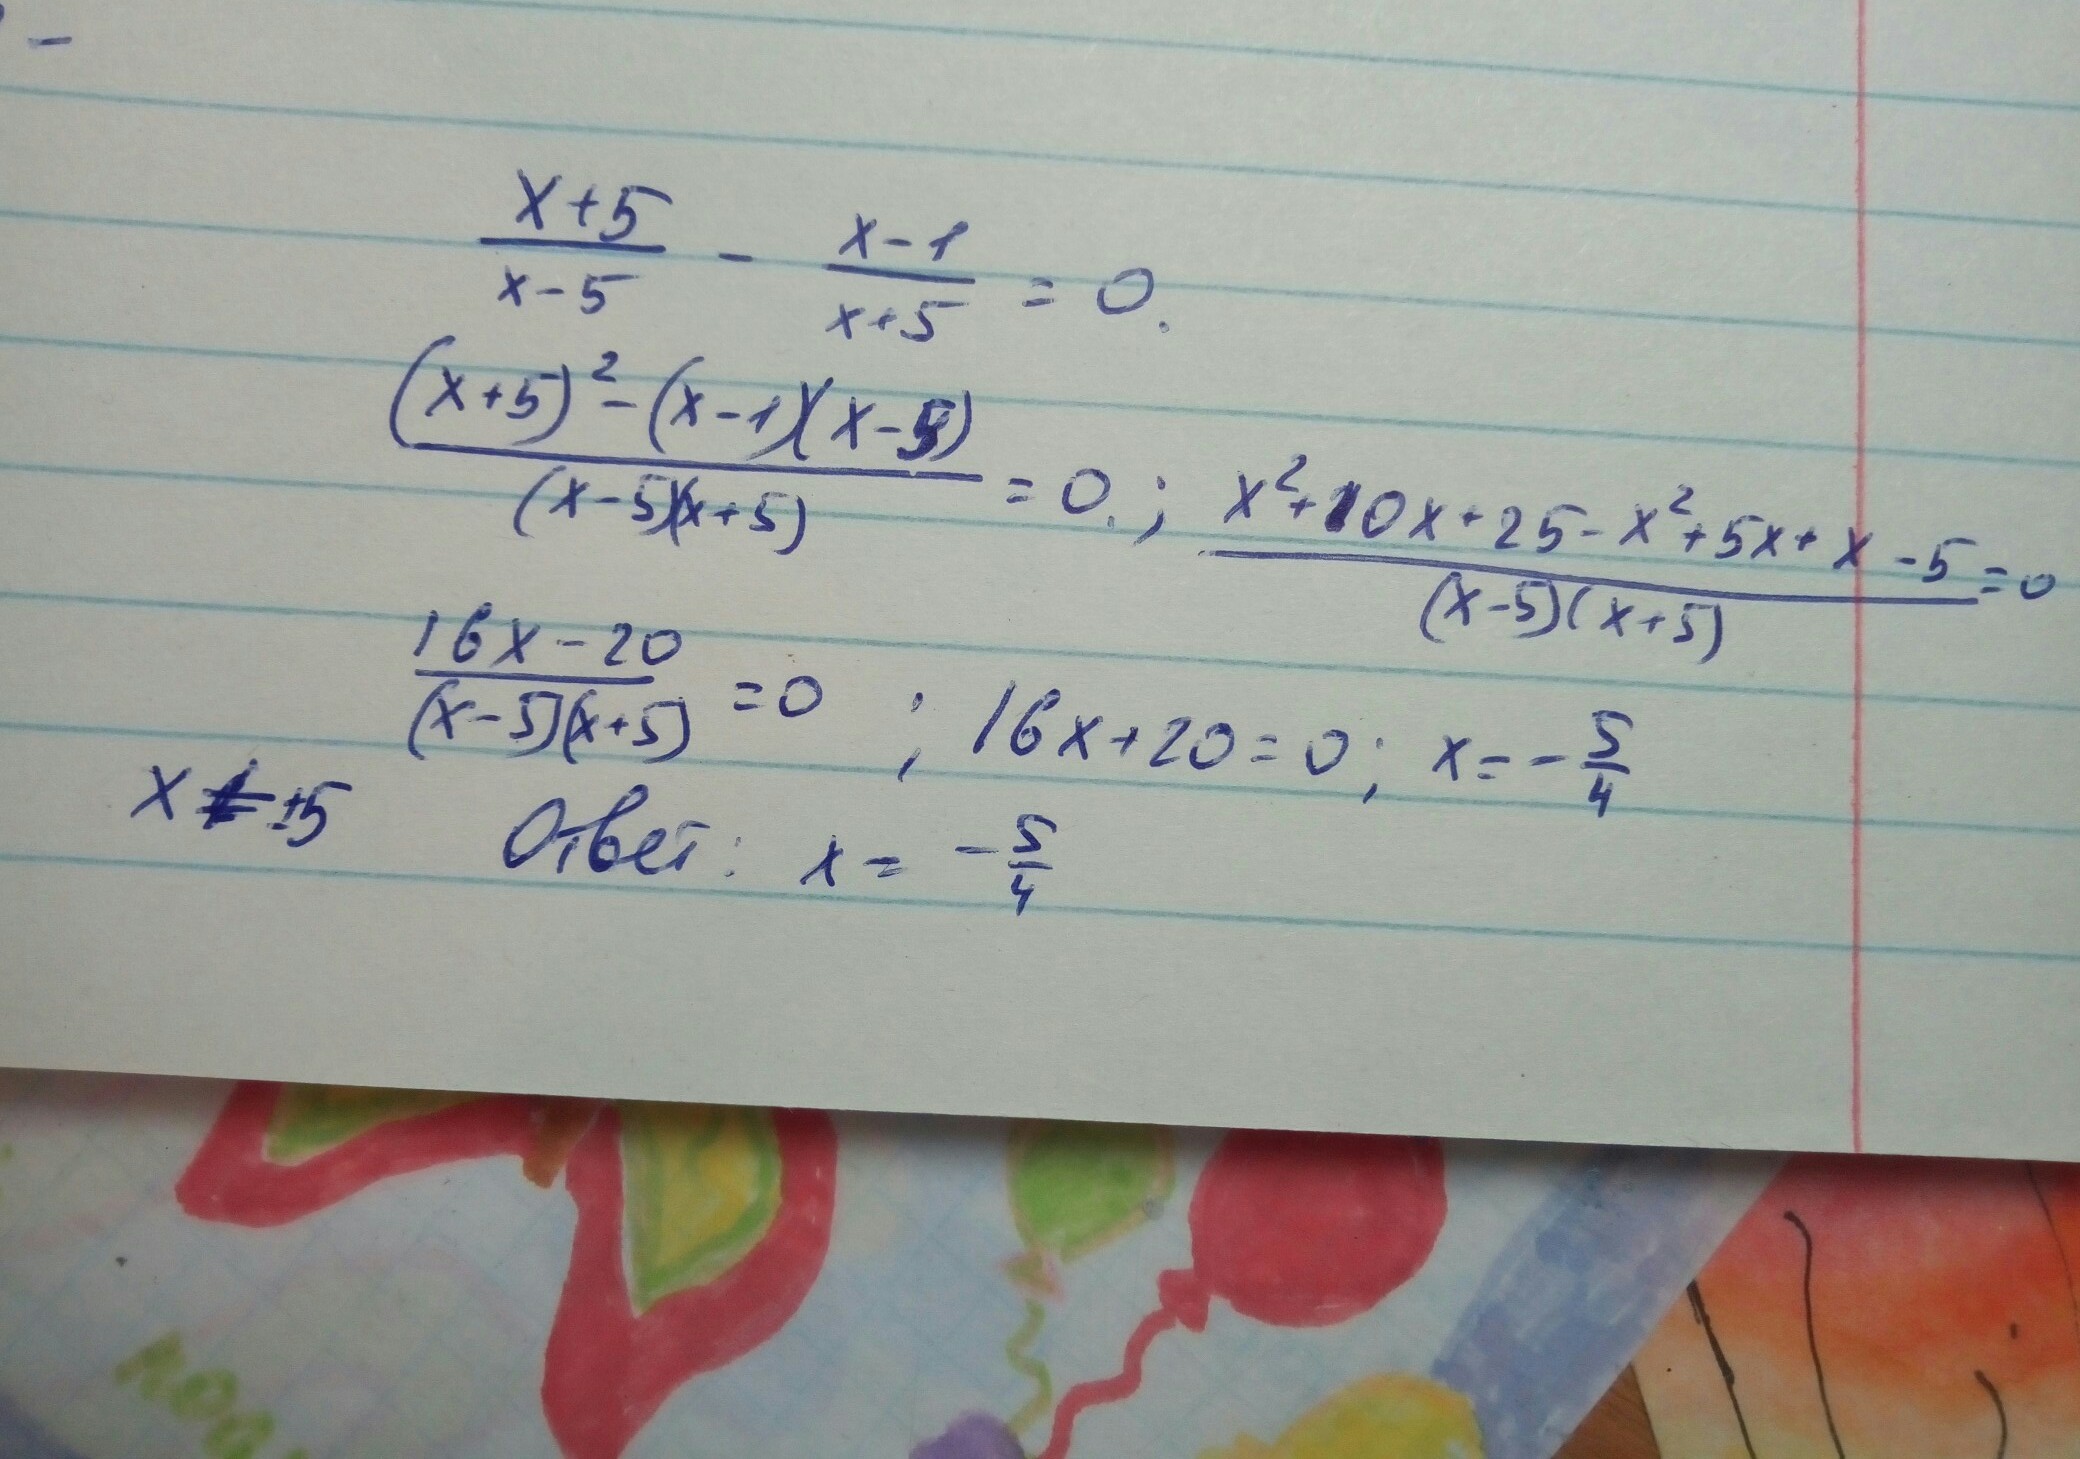 (x+5)/(x-5) - (x-1)/(x+5) = 0.
((x+5)² - (x-1)(x-5))/((x-5)(x+5)) = 0. ; (x²+10x+25-x²+5x+x-5)/((x-5)(x+5)) = 0
(16x-20)/((x-5)(x+5)) = 0 ; 16x+20=0; x=-5/4
x≠±5 Ответ: x = -5/4